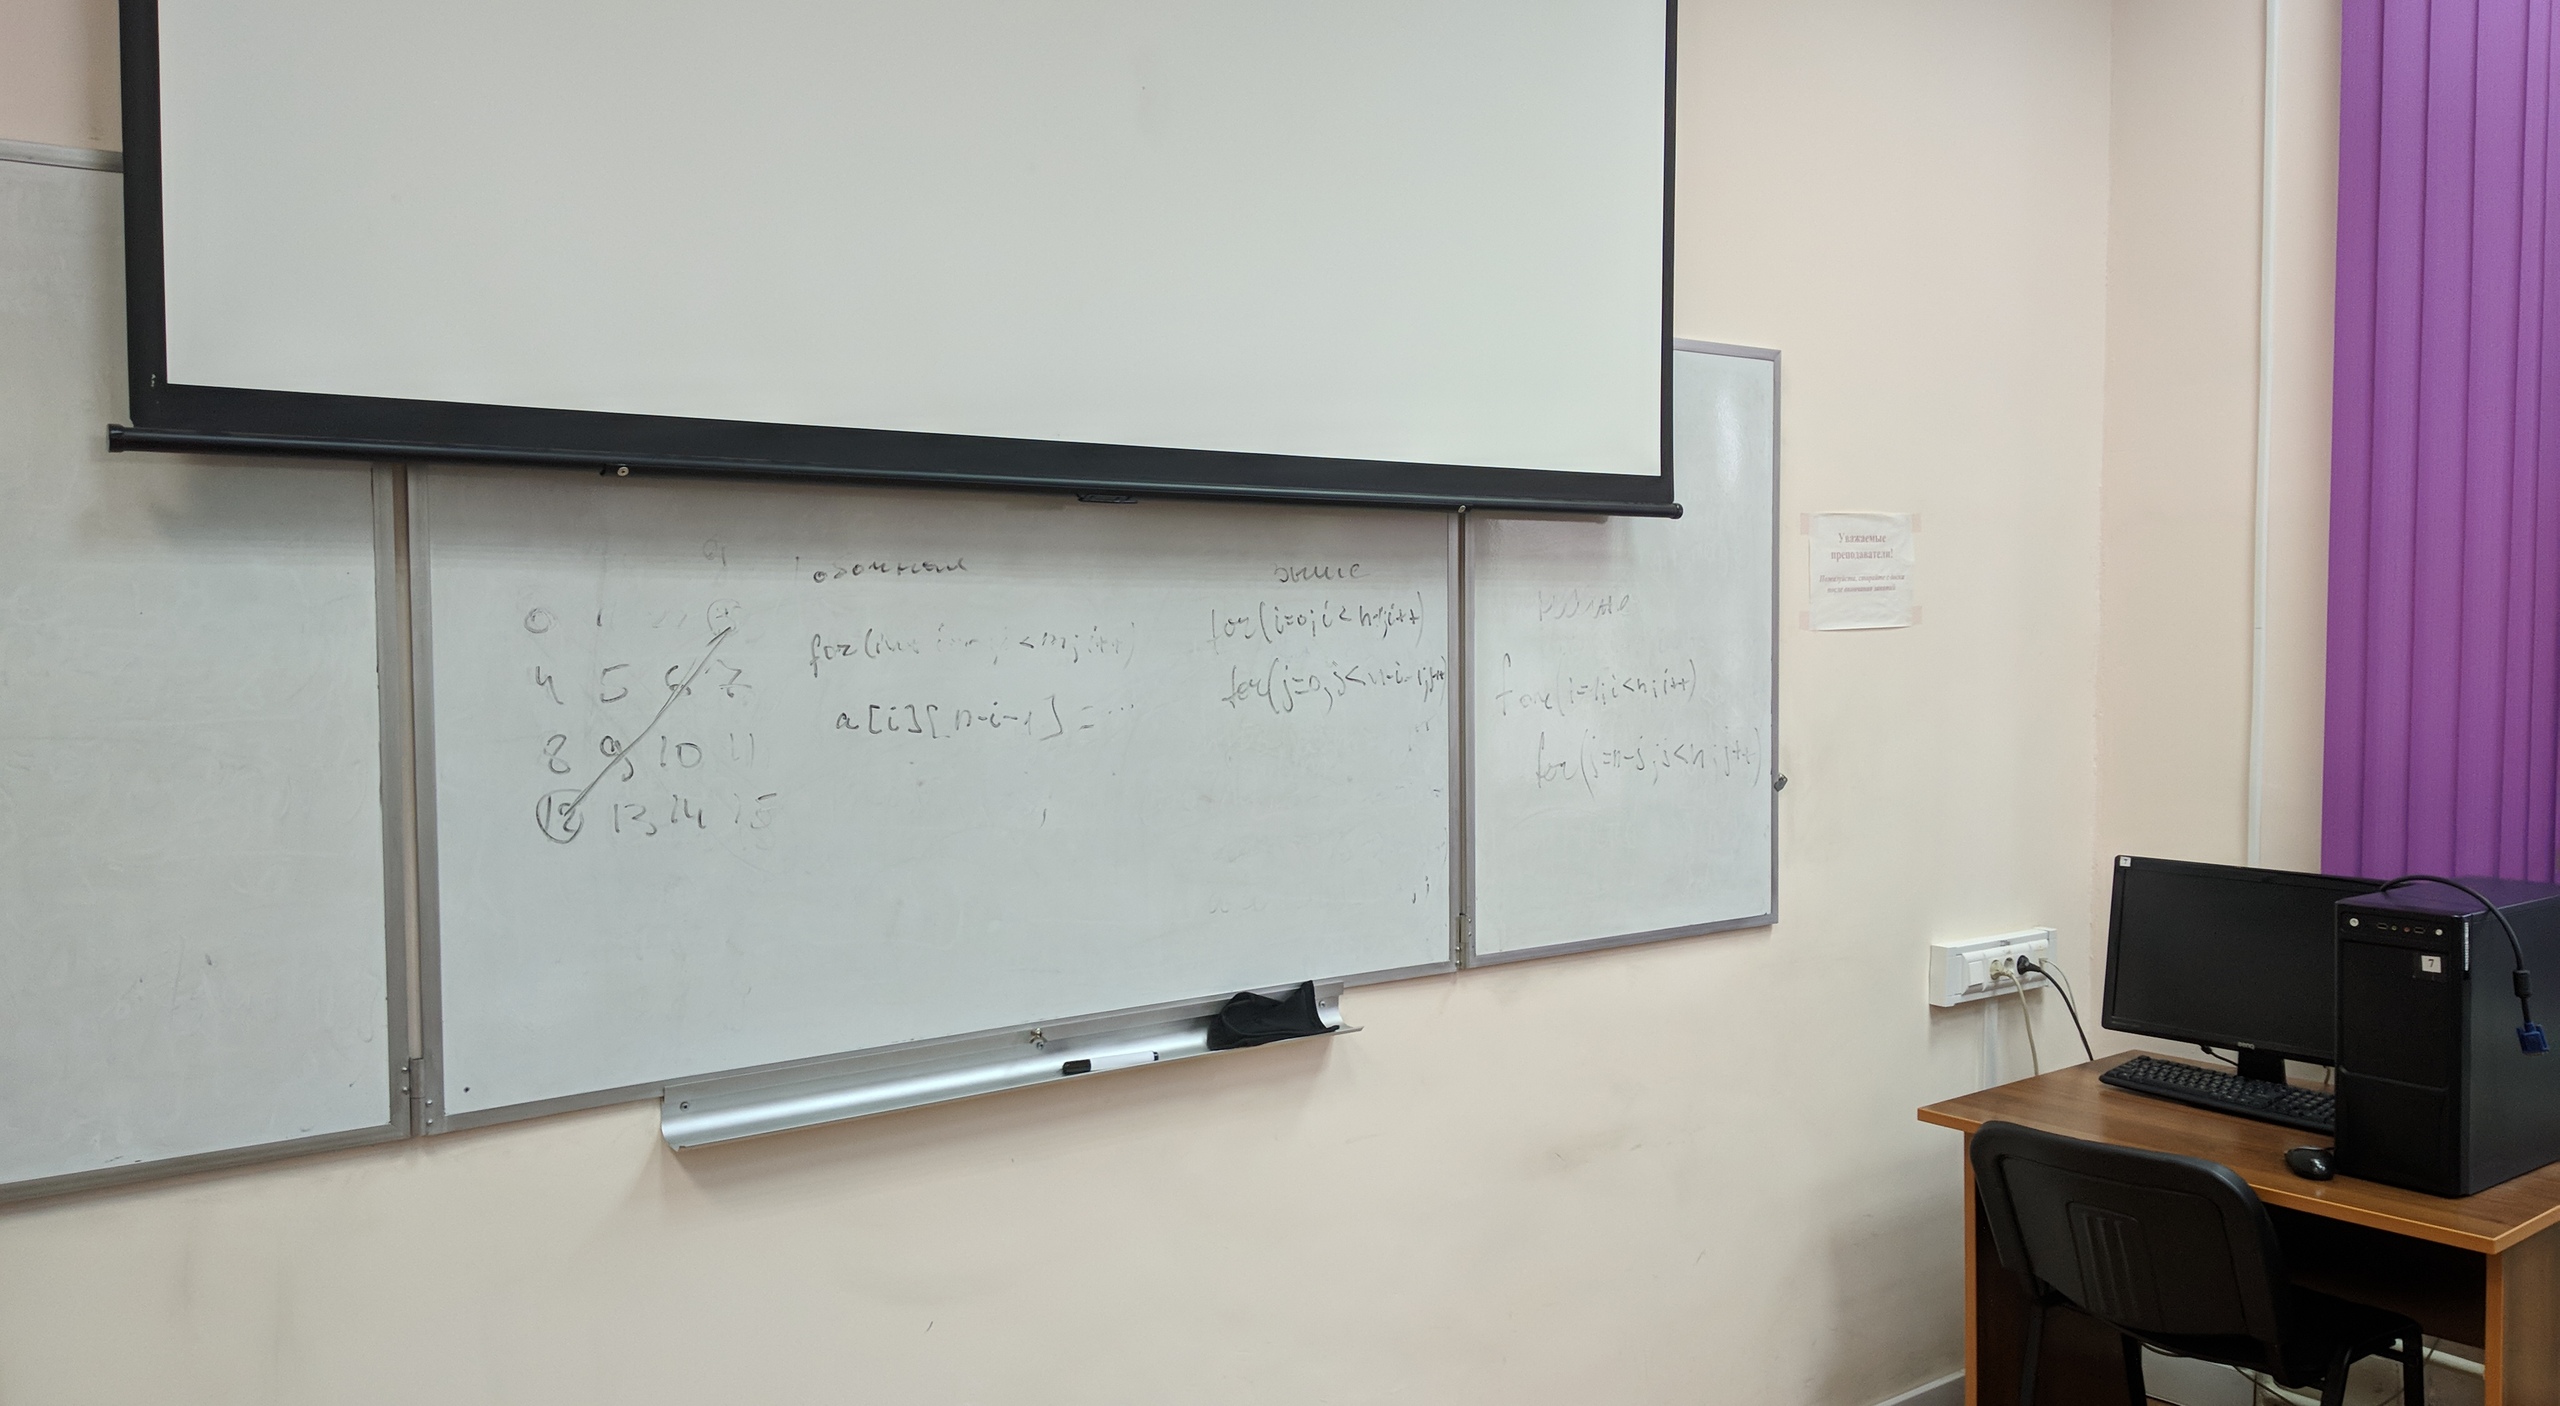 0 1
4 5 6 7
8 9 10 11
12 13 14 15
for(i<n; i++)
a[i][n-i-1] = ...
выше
for(i=0; i<n-1; i++)
for(j=0; j<n-i-1; j++)
for(i=1; i<n; i++)
for(j=n-i; j<n; j++)
Уважаемые
преподаватели!
Пожалуйста, стирайте с доски
после окончания занятий
7